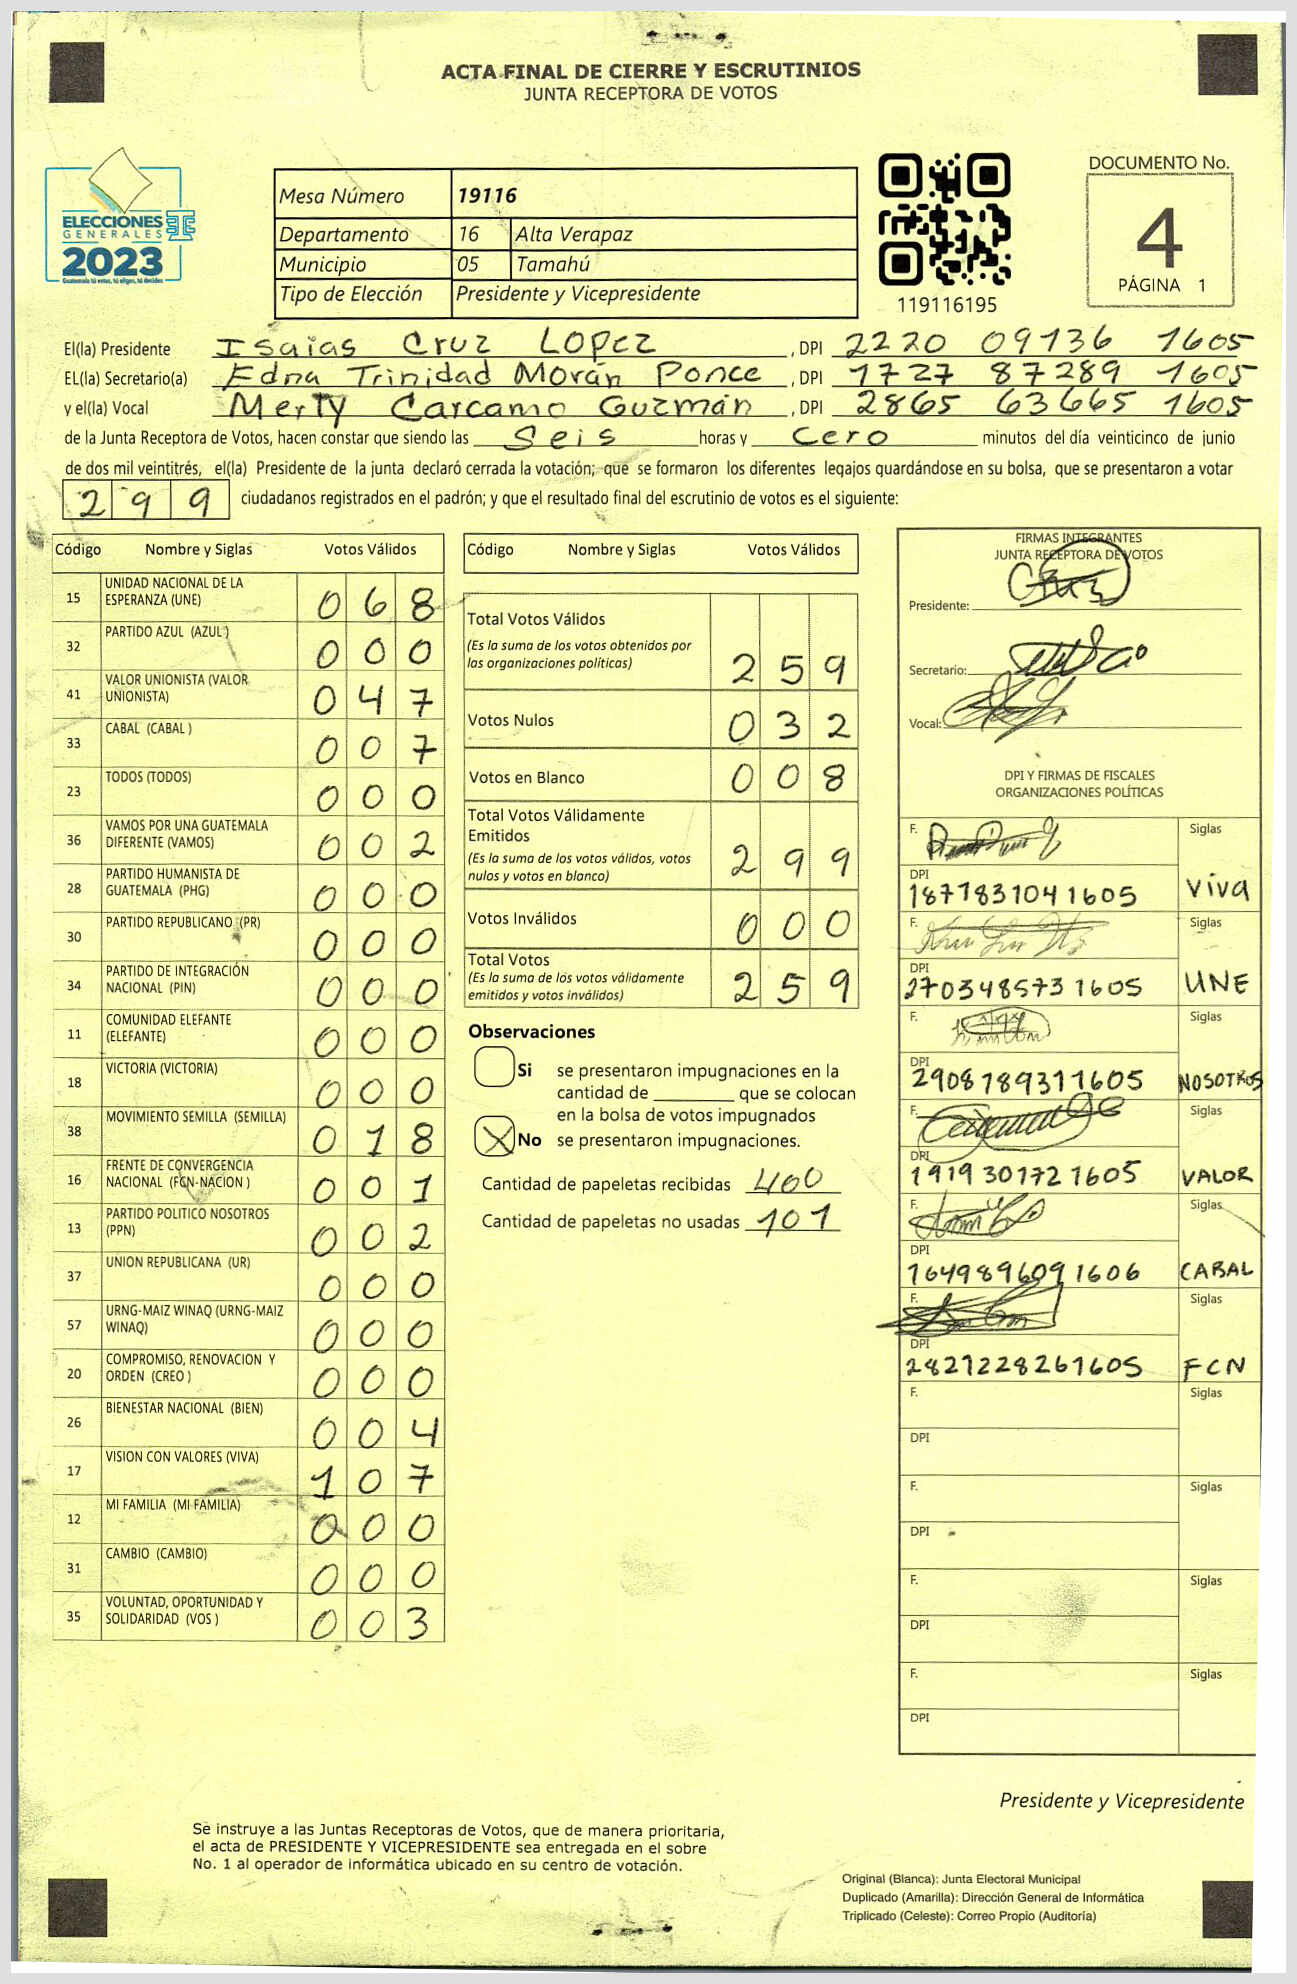 ACTA FINAL DE CIERRE Y ESCRUTINIOS
JUNTA RECEPTORA DE VOTOS
ELECCIONES
GENERALES
2023
Guatemala tú votas, tú eliges, tú decides
Mesa Número 19116
Departamento 16 Alta Verapaz
Municipio 05 Tamahú
Tipo de Elección Presidente y Vicepresidente
119116195
DOCUMENTO No.
4
PÁGINA 1
El(la) Presidente Isaias Cruz Lopez , DPI 2220 09136 1605
EL(la) Secretario(a) Edna Trinidad Morán Ponce , DPI 1727 87289 1605
y el(la) Vocal Merty Carcamo Guzmán , DPI 2865 63665 1605
de la Junta Receptora de Votos, hacen constar que siendo las Seis horas y Cero minutos del día veinticinco de junio
de dos mil veintitrés, el(la) Presidente de la junta declaró cerrada la votación; que se formaron los diferentes legajos guardándose en su bolsa, que se presentaron a votar
299 ciudadanos registrados en el padrón; y que el resultado final del escrutinio de votos es el siguiente:
Código Nombre y Siglas Votos Válidos
15 UNIDAD NACIONAL DE LA ESPERANZA (UNE) 068
32 PARTIDO AZUL (AZUL) 000
41 VALOR UNIONISTA (VALOR UNIONISTA) 047
33 CABAL (CABAL ) 007
23 TODOS (TODOS) 000
36 VAMOS POR UNA GUATEMALA DIFERENTE (VAMOS) 002
28 PARTIDO HUMANISTA DE GUATEMALA (PHG) 000
30 PARTIDO REPUBLICANO (PR) 000
34 PARTIDO DE INTEGRACIÓN NACIONAL (PIN) 000
11 COMUNIDAD ELEFANTE (ELEFANTE) 000
18 VICTORIA (VICTORIA) 000
38 MOVIMIENTO SEMILLA (SEMILLA) 018
16 FRENTE DE CONVERGENCIA NACIONAL (FCN-NACION ) 001
13 PARTIDO POLITICO NOSOTROS (PPN) 002
37 UNION REPUBLICANA (UR) 000
57 URNG-MAIZ WINAQ (URNG-MAIZ WINAQ) 000
20 COMPROMISO, RENOVACION Y ORDEN (CREO ) 000
26 BIENESTAR NACIONAL (BIEN) 004
17 VISION CON VALORES (VIVA) 107
12 MI FAMILIA (MI FAMILIA) 000
31 CAMBIO (CAMBIO) 000
35 VOLUNTAD, OPORTUNIDAD Y SOLIDARIDAD (VOS ) 003
Código Nombre y Siglas Votos Válidos
Total Votos Válidos
(Es la suma de los votos obtenidos por
las organizaciones políticas) 259
Votos Nulos 032
Votos en Blanco 008
Total Votos Válidamente
Emitidos
(Es la suma de los votos válidos, votos
nulos y votos en blanco) 299
Votos Inválidos 000
Total Votos
(Es la suma de los votos válidamente
emitidos y votos inválidos) 259
Observaciones
Si se presentaron impugnaciones en la
cantidad de ________ que se colocan
en la bolsa de votos impugnados
X No se presentaron impugnaciones.
Cantidad de papeletas recibidas 400
Cantidad de papeletas no usadas 101
FIRMAS INTEGRANTES
JUNTA RECEPTORA DE VOTOS
Presidente:
Secretario:
Vocal:
DPI Y FIRMAS DE FISCALES
ORGANIZACIONES POLÍTICAS
F. Siglas
DPI
1871831041605 Viva
F. Siglas
DPI
2703485731605 UNE
F. Siglas
DPI
2908789311605 NOSOTROS
F. Siglas
DPI
1919301721605 VALOR
F. Siglas
DPI
1649896091606 CABAL
F. Siglas
DPI
2821228261605 FCN
F. Siglas
DPI
F. Siglas
DPI
F. Siglas
DPI
F. Siglas
DPI
Presidente y Vicepresidente
Se instruye a las Juntas Receptoras de Votos, que de manera prioritaria,
el acta de PRESIDENTE Y VICEPRESIDENTE sea entregada en el sobre
No. 1 al operador de informática ubicado en su centro de votación.
Original (Blanca): Junta Electoral Municipal
Duplicado (Amarilla): Dirección General de Informática
Triplicado (Celeste): Correo Propio (Auditoría)